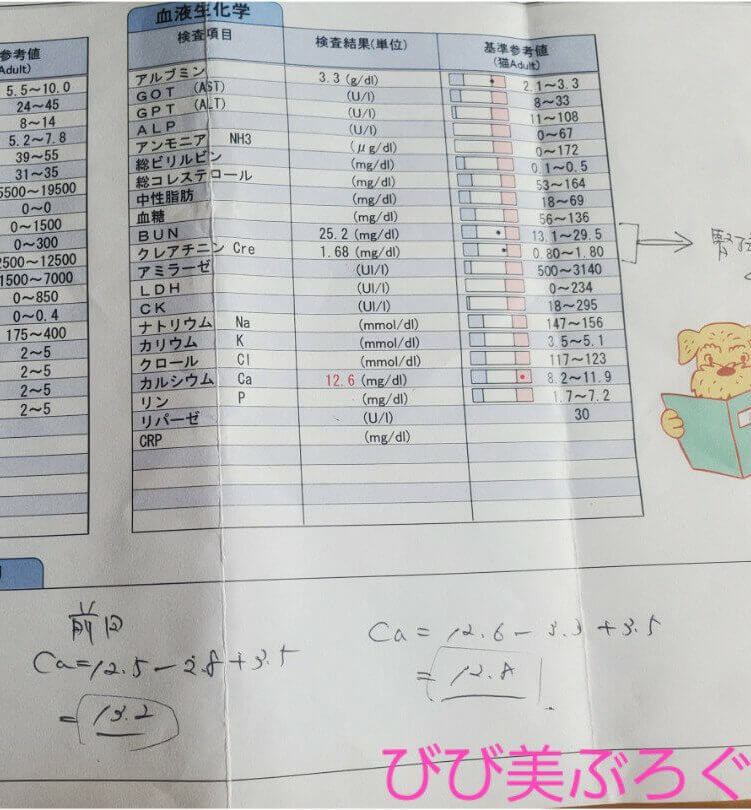 血液生化学
検査項目 検査結果(単位) 基準参考値
(猫Adult)
アルブミン 3.3 (g/dl) 2.1～3.3
GOT (AST) (U/l) 8～33
GPT (ALT) (U/l) 11～108
ALP (U/l) 0～67
アンモニア NH3 (μg/dl) 0～172
総ビリルビン (mg/dl) 0.1～0.5
総コレステロール (mg/dl) 53～164
中性脂肪 (mg/dl) 18～69
血糖 (mg/dl) 56～136
BUN 25.2 (mg/dl) 13.1～29.5
クレアチニン Cre 1.68 (mg/dl) 0.80～1.80
アミラーゼ (UI/l) 500～3140
LDH (UI/l) 0～234
CK (UI/l) 18～295
ナトリウム Na (mmol/dl) 147～156
カリウム K (mmol/dl) 3.5～5.1
クロール Cl (mmol/dl) 117～123
カルシウム Ca 12.6 (mg/dl) 8.2～11.9
リン P (mg/dl) 1.7～7.2
リパーゼ (U/l) 30
CRP (mg/dl)
参考値
Adult)
5.5～10.0
24～45
8～14
5.2～7.8
39～55
31～35
5500～19500
0～0
0～1500
0～300
2500～12500
1500～7000
0～850
0～0.4
175～400
2～5
2～5
2～5
2～5
腎
前回
Ca=12.5-2.8+3.5
=13.2
Ca=12.6-3.3+3.5
=12.8
びび美ぶろぐ